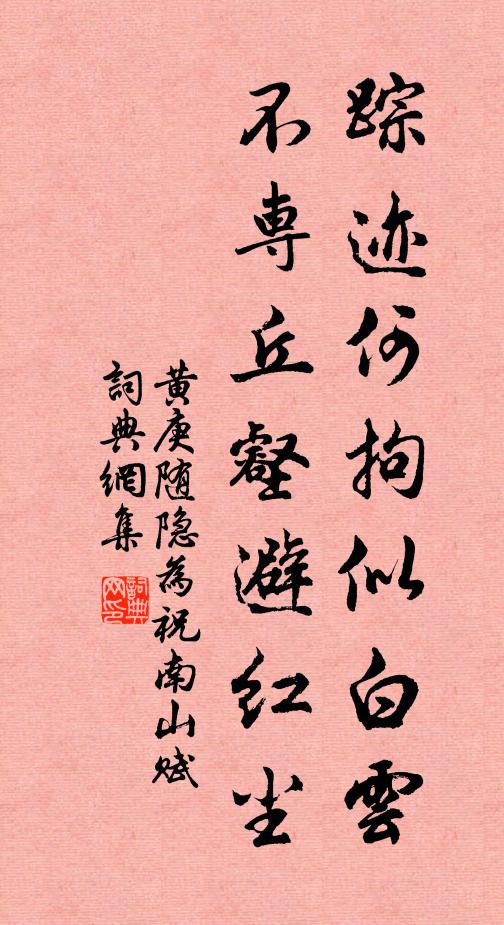 踪迹何拘似白雲
不專丘壑避紅尘
黄庚随隐為祝南山赋
詞典網集
詞典网印